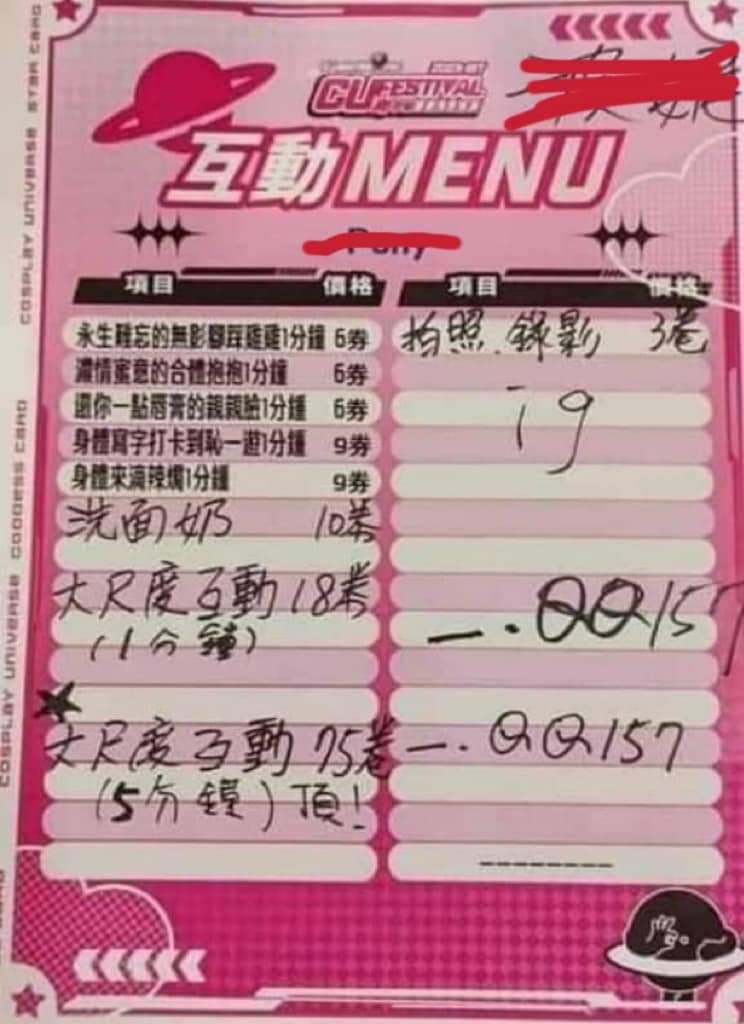 CU FESTIVAL
互動MENU
項目 價格
永生難忘的無影腳踩雞雞1分鐘 6券
濃情蜜意的合體抱抱1分鐘 6券
還你一點唇膏的親親臉1分鐘 6券
身體寫字打卡到恥一遊1分鐘 9券
身體來滴辣燭1分鐘 9券
洗面奶 10券
大尺度互動 18券
(1分鐘)
★
大尺度互動 75卷
(5分鐘) 頂!
項目 價格
拍照.錄影 3卷
ig
_.QQ157
_.QQ157
COSPLAY UNIVERSE STAR CARD
COSPLAY UNIVERSE GODDESS CARD